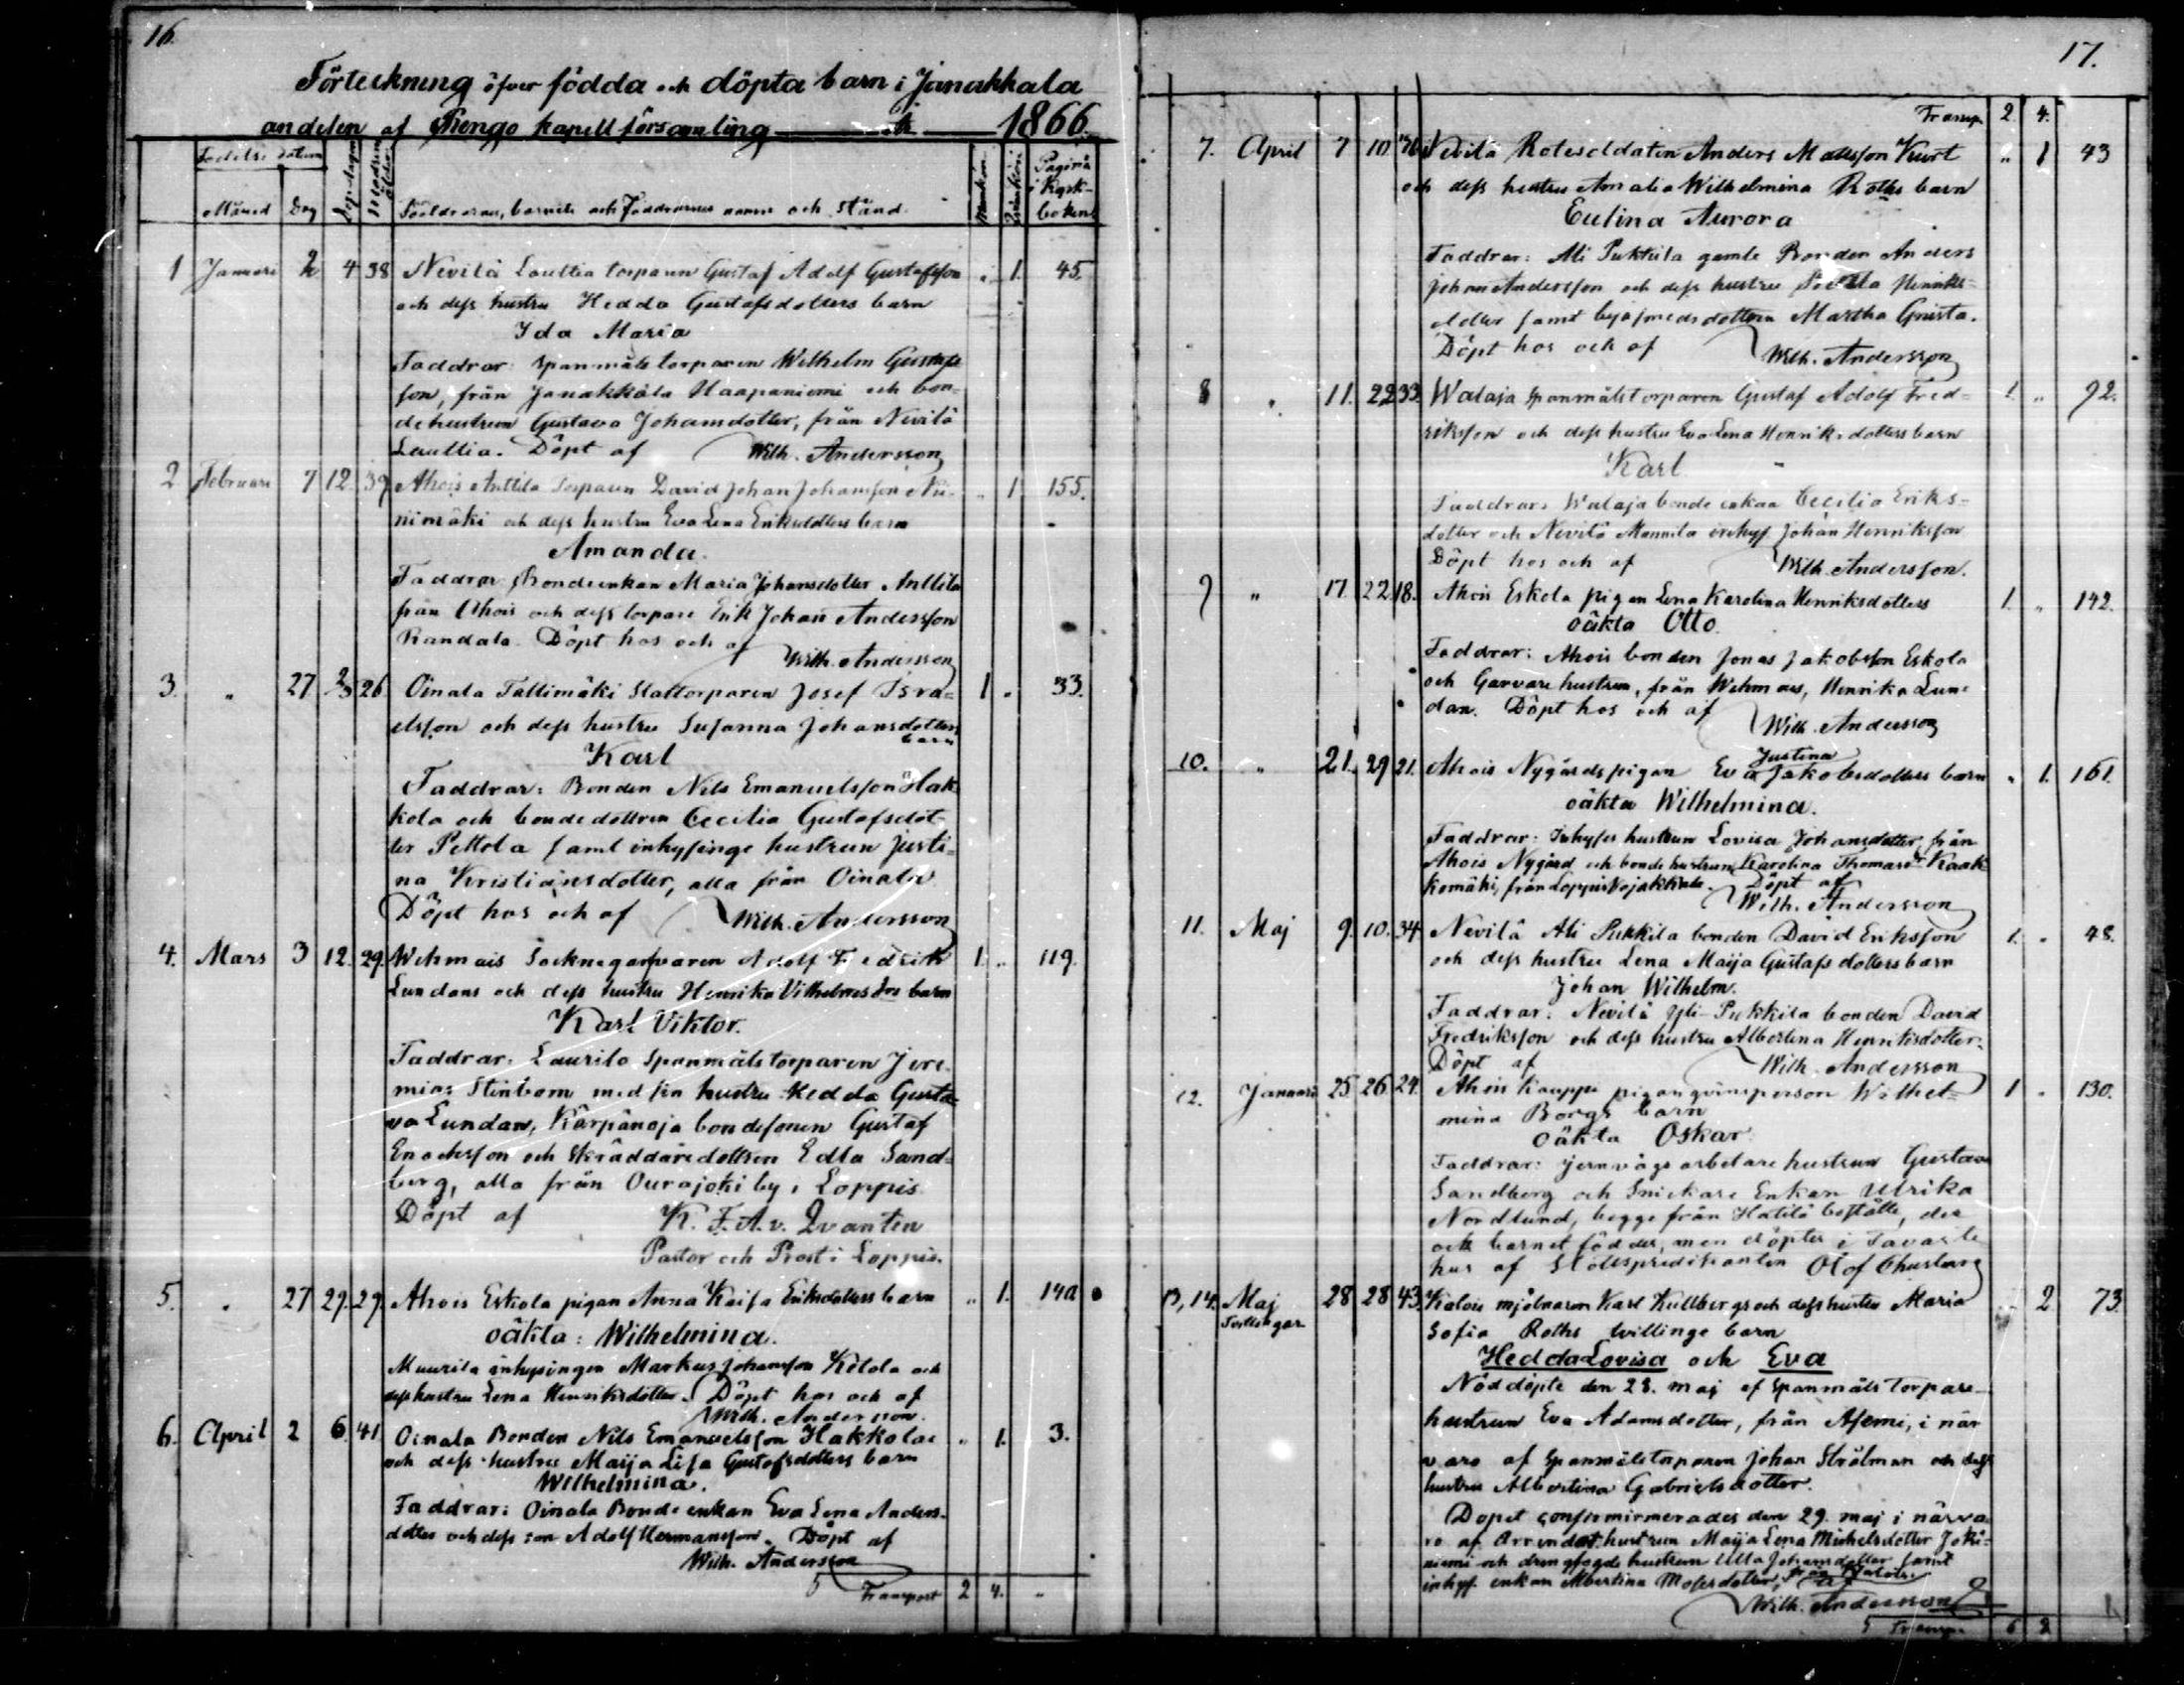 16.
Förteckning öfver födda och döpta barn i Janakkala
andelen af Rengo kapell församling år 1866.
Födelse datum
Månad Dag Döpt dagen Modrens ålder Föräldrarnes, barnets och Faddrarnes namn och stånd. Mankön Qvinkön Pagina i Kyrkboken
1 Januari 2 4 38 Nevilä Lauttia torparen Gustaf Adolf Gustafsson " 1. 45.
och dess hustru Hedda Gustafsdotters barn
Ida Maria
Faddrar: Spanmåls torparen Wilhelm Gustafs
son, från Janakkala Haapaniemi och bon=
dehustrun Gustava Johansdotter, från Nevilä
Lauttia. Döpt af Wilh. Andersson
2 Februari 7 12 39 Ahois Anttila Torparen David Johan Johansson Nii- " 1 155.
nimäki och dess hustru Eva Lena Eriksdotters barn
Amanda.
Faddrar: Bondeenkan Maria Johansdotter Anttila
från Ahois och dess torpare Erik Johan Andersson
Randala. Döpt hos och af
Wilh. Andersson
3. " 27 2/3 26 Oinala Tallimäki Stattorparen Josef Isra= 1 " 33.
elsson och dess hustru Susanna Johansdotters
barn
Karl
Faddrar: Bonden Nils Emanuelsson Hak
kola och bondedottren Cecilia Gustafsdot
ter Pettola samt inhysinge hustrun Justi=
na Kristiansdotter, alla från Oinala
Döpt hos och af Wilh. Andersson
4. Mars 3 12. 29. Wehmais Sockne garfvaren Adolf Fredrik 1. " 119.
Lundans och dess hustru Henrika Vilhelms dr barn
Karl Viktor.
Faddrar: Laurila Spanmåls torparen Jere
mias Stenbom med sin hustru Hedda Gusta
va Lundan, Kärpänoja bondesonen Gustaf
Enochsson och Skräddaredottren Edla Sand=
berg, alla från Ourajoki by i Loppis
Döpt af K. F. A. v. Qvanten
Pastor och Prost i Loppis.
5. " 27 29. 29. Ahois Eskola pigan Anna Kaisa Eriksdotters barn " 1. 140
oäkta: Wilhelmina.
Muurila inhysingen Markus Johansson Kölola och
dess hustru Lena Henriksdotter. Döpt hos och af
Wilh. Andersson.
6. April 2 6. 41. Oinala Bonden Nils Emanuelsson Hakkolas " 1. 3.
och dess hustru Maija Lisa Gustafsdotters barn
Wilhelmina.
Faddrar: Oinala Bonde enkan Eva Lena Anders-
dotter och dess son Adolf Hermansson. Döpt af
Wilh. Andersson
Transport 2 4. -
17.
Transp. 2 4.
7. April 7 10 Nevilä Rotesoldaten Anders Matsson Kurt " 1 43
och dess hustru Amalia Wilhelmina Roths barn
Eulina Aurora
Faddrar: Ali Pukkila gamle Bonden Anders
Johan Andersson och dess hustru Henriks=
dotter samt bysmedsdottren Martha Grista.
Döpt hos och af Wilh. Andersson
8 " 11. 22 33. Walaja Spanmåls torparen Gustaf Adolf Fred= 1. " 92.
riksson och dess hustru Eva Lena Henriksdotters barn
Karl
Faddrar: Walaja bonde enkan Cecilia Eriks=
dotter och Nevilä Mannila inhys Johan Henriksson
Döpt hos och af Wilh. Andersson.
9 " 17. 22. 18. Ahois Eskola pigan Lena Karolina Henriksdotters 1. " 142.
oäkta Otto.
Faddrar: Ahois bonden Jonas Jakobsson Eskola
och Garvare hustrun, från Wehmais, Henrika Lun=
dan. Döpt hos och af Wilh. Andersson
10. " 21. 29 21. Ahois Nygårds pigan Eva Justina Jakobsdotters barn " 1. 161.
oäkta Wilhelmina.
Faddrar: Inhyses hustrun Lovisa Johansdotter, från
Ahois Nygård och bonde hustrun Karolina Thomasdr Kaak
komäki, från Loppis Vojakkala. Döpt af
Wilh. Andersson
11. Maj 9. 10. 34 Nevilä Ali Pukkila bonden David Eriksson 1. " 48.
och dess hustru Lena Maija Gustafs dotters barn
Johan Wilhelm.
Faddrar: Nevilä Yli-Pukkila bonden David
Fredriksson och dess hustru Albertina Henriksdotter.
Döpt af Wilh. Andersson
12. Januari 25 26 24. Ahois Kauppi pigan qvinsperson Wilhel= 1 " 130.
mina Borgs barn
oäkta Oskar.
Faddrar: jernvägs arbetare hustrun Gustava
Sandberg och Snickare Enkan Ulrika
Nordlund, begge från Hätilä boställe, der
ock barnet föddes, men döptes i Tavaste
hus af Slottspredikanten Olof Chusberg
13, 14. Maj 28 28 43. Kalois mjölnaren Karl Kullbergs och dess hustru Maria " 2 73.
Tvillingar Sofia Roths tvillinge barn
Hedda Lovisa och Eva
Nöddöpte den 28. maj af Spanmåls Torpare-
hustrun Eva Adamsdotter, från Asemi, i när
varo af Spanmåls torparen Johan Strålman och dess
hustru Albertina Gabrielsdotter.
Dopet confirmerades den 29. maj i närva
ro af Arrendat. hustrun Maija Lena Michelsdotter Joki=
niemi och drängfogde hustrun Ulla Johansdotter samt
inhys. enkan Albertina Mosesdotter, från Kalois. af
Wilh. Andersson
Transp. 6 8